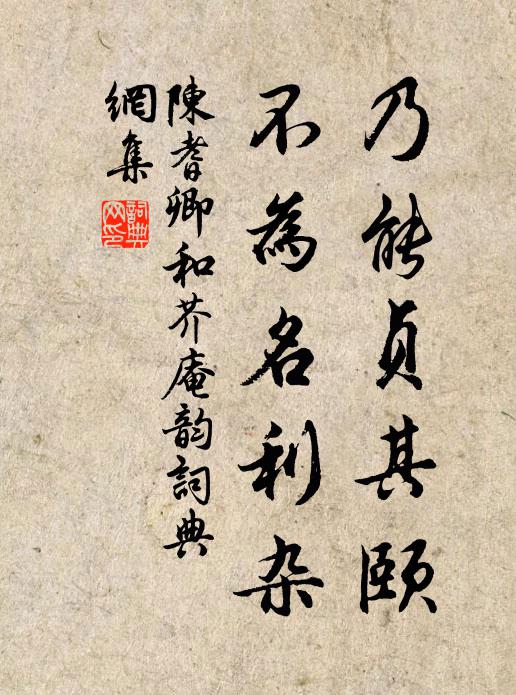 乃能貞其頤
不為名利杂
陳耆卿和芥庵韵詞典
網集
詞典
网印